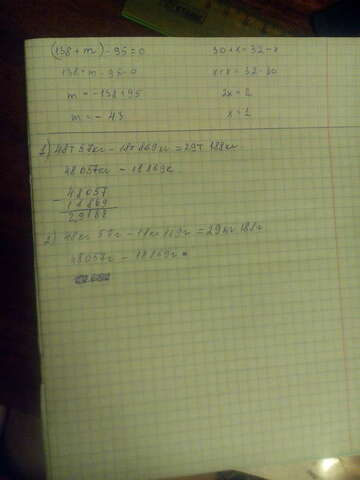 (138 + m) - 95 = 0
138 + m - 95 = 0
m = -138 + 95
m = - 43
30 + x = 32 - x
x + x = 32 - 30
2x = 2
x = 1
1) 48т 57кг - 18т 869кг = 29т 188кг
48057кг - 18869к
- 48057
18869
29188
2) 48кг 57г - 18кг 869г = 29кг 188г
48057г - 18869г =